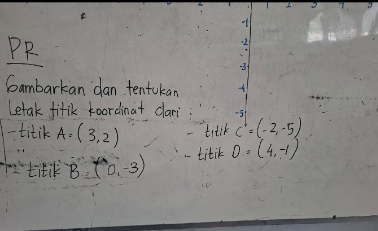 -1
-2
-3
-4
-5
PR
Gambarkan dan tentukan
Letak titik koordinat dari
- titik A = (3,2)
- titik B = (0,-3)
- titik C = (-2,-5)
- titik D = (4,-1)